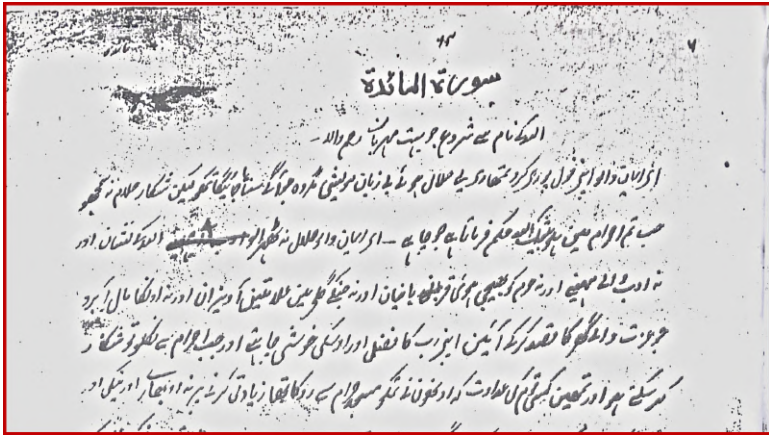 ۶۳
۶
سورۃ المائدة
اللہ کے نام سے شروع جو بہت مہربان رحم والا۔
اے ایمان والو اپنے قول پورے کرو تمھارے لیے حلال ہوئے بے زبان مویشی مگر وہ جو آگے سنایا جائیگا تمکو لیکن شکار حلال نہ سمجھو
جب تم احرام میں ہو بیشک اللہ حکم فرماتا ہے جو چاہے ۔ اے ایمان والو حلال نہ ٹھہرالو اللہ کے نشان اور
نہ ادب والے مہینے اور نہ حرم کو بھیجی ہوئی قربانیاں اور نہ جنکے گلے میں علامتیں آویزاں اور نہ اونکا مال آبرو
جو عزت والے گھر کا قصد کرکے آئیں اپنے رب کا فضل اور اوسکی خوشی چاہتے اور جب احرام سے نکلو تو شکار
کر سکتے ہو اور تمھیں کسی قوم کی عداوت کہ اونھوں نے تمکو مسجد حرام سے روکا تھا زیادتی کرنے پر نہ اوبھارے اور نیکی اور